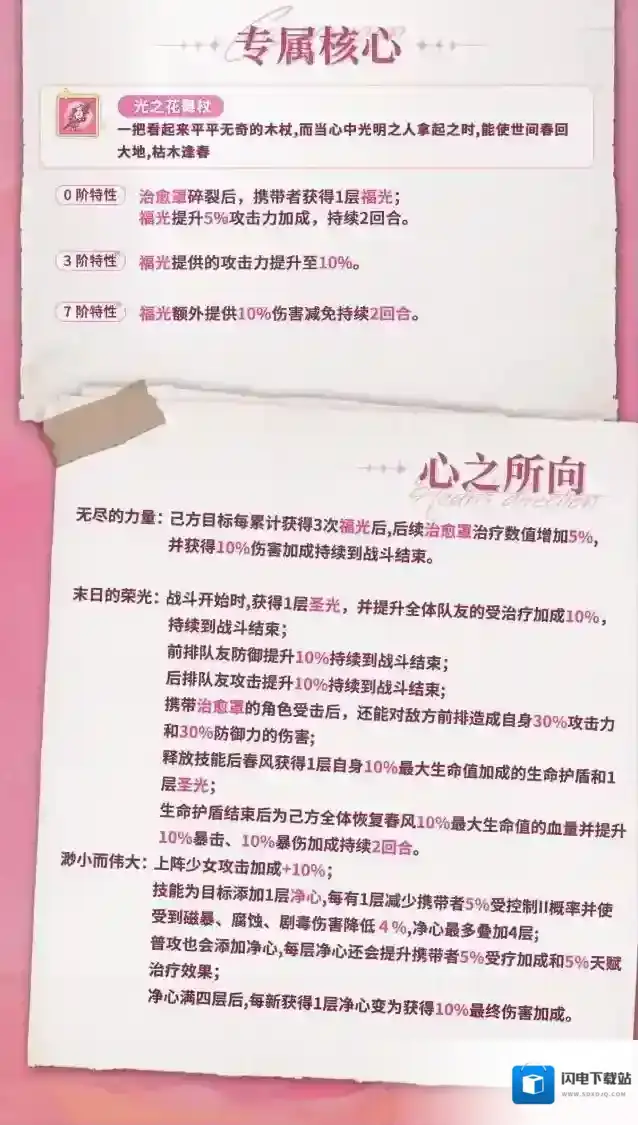 专属核心
光之花舞杖
一把看起来平平无奇的木杖,而当心中光明之人拿起之时,能使世间春回
大地,枯木逢春
0 阶特性
治愈罩碎裂后，携带者获得1层福光；
福光提升5%攻击力加成，持续2回合。
3 阶特性
福光提供的攻击力提升至10%。
7 阶特性
福光额外提供10%伤害减免持续2回合。
心之所向
无尽的力量：己方目标每累计获得3次福光后,后续治愈罩治疗数值增加5%,
并获得10%伤害加成持续到战斗结束。
末日的荣光：战斗开始时,获得1层圣光，并提升全体队友的受治疗加成10%，
持续到战斗结束；
前排队友防御提升10%持续到战斗结束；
后排队友攻击提升10%持续到战斗结束；
携带治愈罩的角色受击后，还能对敌方前排造成自身30%攻击力
和30%防御力的伤害；
释放技能后春风获得1层自身10%最大生命值加成的生命护盾和1
层圣光；
生命护盾结束后为己方全体恢复春风10%最大生命值的血量并提升
10%暴击、10%暴伤加成持续2回合。
渺小而伟大：上阵少女攻击加成+10%；
技能为目标添加1层净心,每有1层减少携带者5%受控制II概率并使
受到磁暴、腐蚀、剧毒伤害降低 4 %,净心最多叠加4层；
普攻也会添加净心,每层净心还会提升携带者5%受疗加成和5%天赋
治疗效果；
净心满四层后,每新获得1层净心变为获得10%最终伤害加成。
闪电下载站
WWW.SDXDJQ.COM